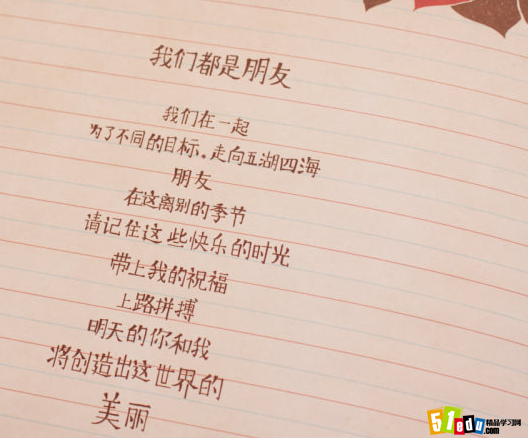 我们都是朋友
我们在一起
为了不同的目标。走向五湖四海
朋友
在这离别的季节
请记住这些快乐的时光
带上我的祝福
上路拼搏
明天的你和我
将创造出这世界的
美丽
51edu精品学习网
.com